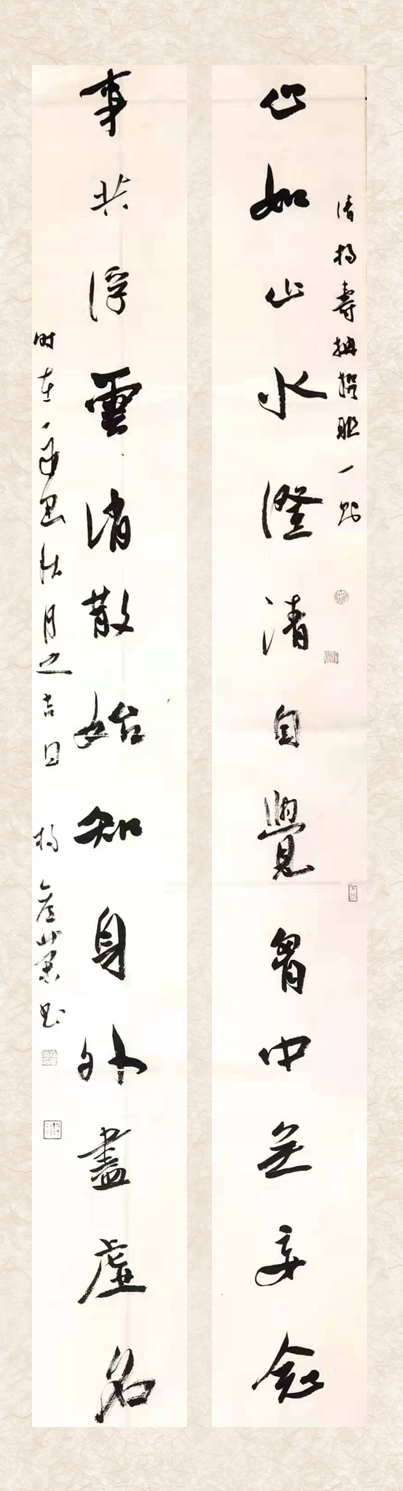 清楊壽枏撰聯一則
心如止水澄清自覺胷中無妄念
事共浮雲消散始知身外盡虛名
時在 秋月之吉日 楊 業書